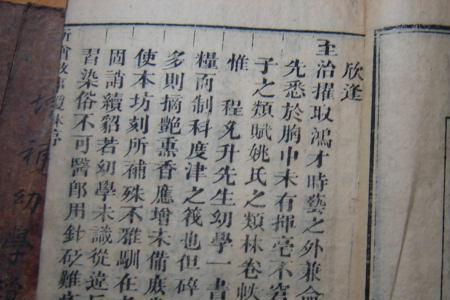 欣逢
主治擢取鴻才時藝之外兼命
先悉於胸中未有揮亳不窘
子之類賦姚氏之類林卷帙
惟 程允升先生幼學一書
糧而制科度津之筏也但碎
多則摘艶熏香應增未備庻
使本坊刻所補殊不雅馴在
固誚續貂若幼學未識從違
習染俗不可醫郎用針砭難
新增故事瓊林序
幼學